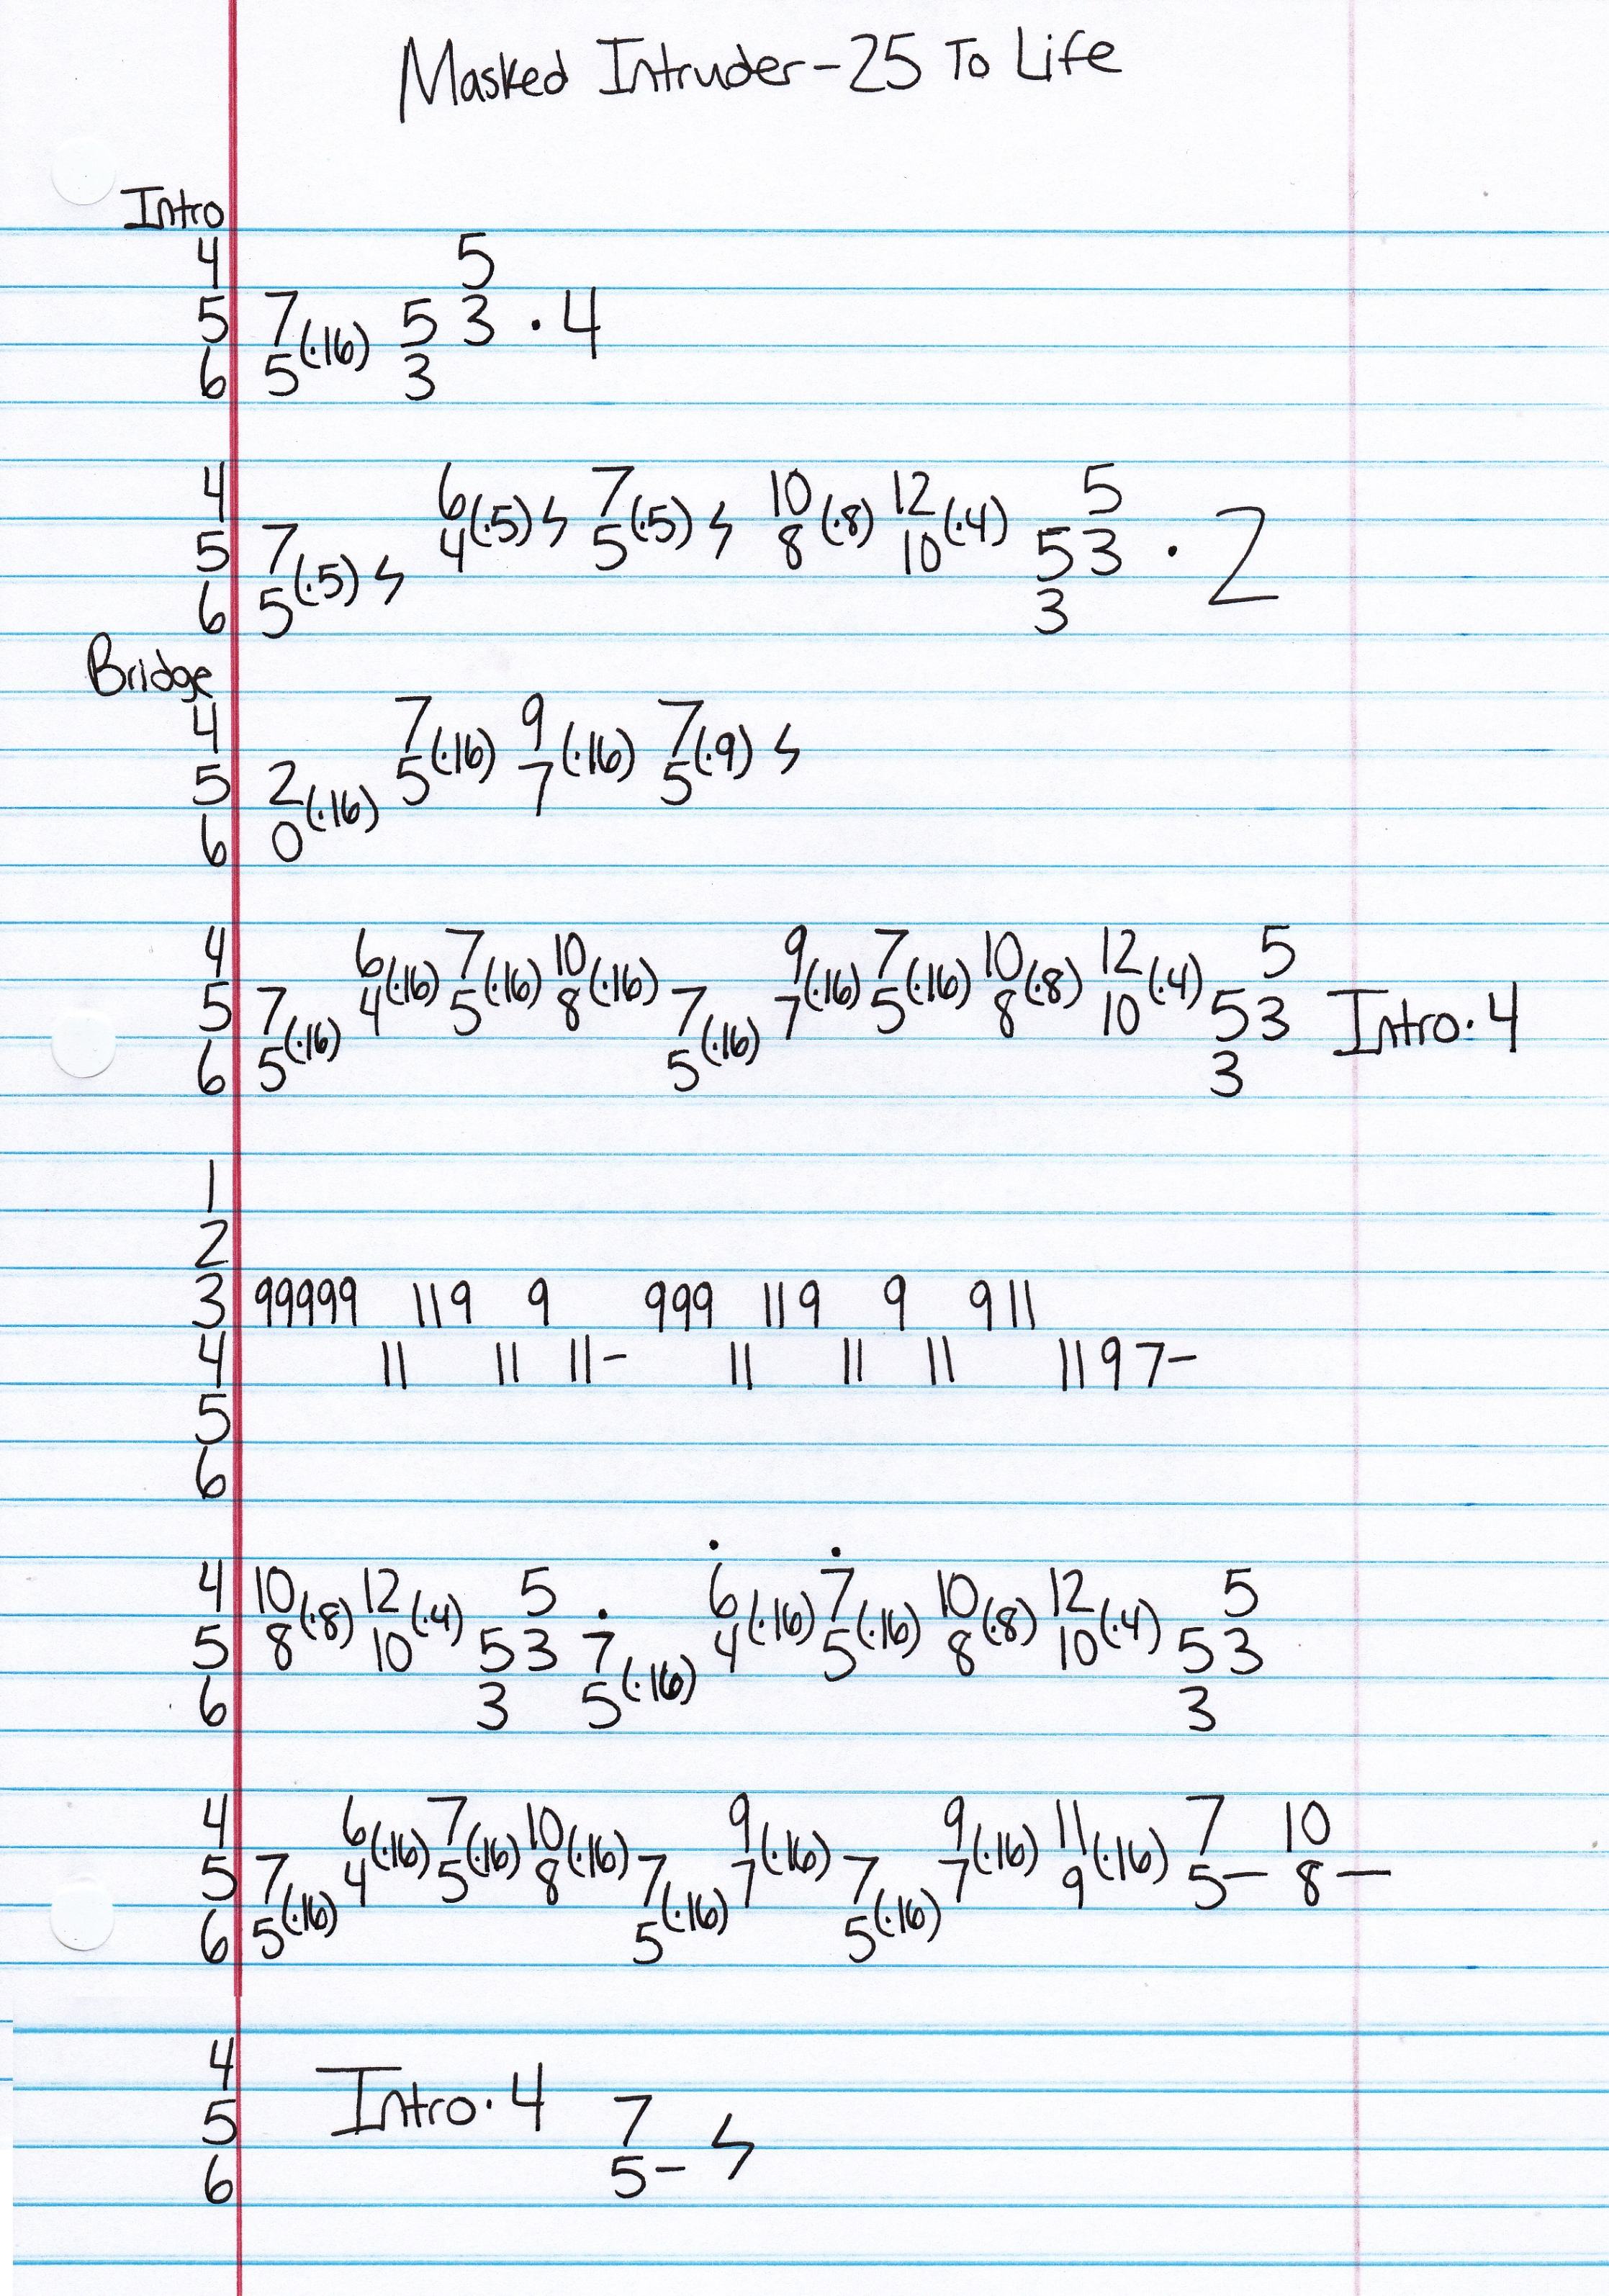 Masked Intruder-25 To Life
Intro
4 5
5 7(·16) 5 3 · 4
6 5 3
4 6(·5)ϟ 7(·5)ϟ 10(·8) 12(·4) 5
5 7(·5)ϟ 4 5 8 10 5 3 · 2
6 5 3
Bridge
4 7(·16) 9(·16) 7(·9)ϟ
5 2(·16) 5 7 5
6 0
4 6(·16) 7(·16) 10(·16) 9(·16) 7(·16) 10(·8) 12(·4) 5
5 7(·16) 4 5 8 7(·16) 7 5 8 10 5 3 Intro·4
6 5 5 3
1
2
3 99999 11 9 9 999 11 9 9 9 11
4 11 11 11- 11 11 11 11 9 7-
5
6
· ·
4 10(·8) 12(·4) 5 · 6(·16) 7(·16) 10(·8) 12(·4) 5
5 8 10 5 3 7(·16) 4 5 8 10 5 3
6 3 5 3
4 6(·16) 7(·16) 10(·16) 9(·16) 9(·16) 11(·16) 7 10
5 7(·16) 4 5 8 7(·16) 7 7(·16) 7 9 5- 8-
6 5 5 5
4 Intro·4
5 7 ϟ
6 5-